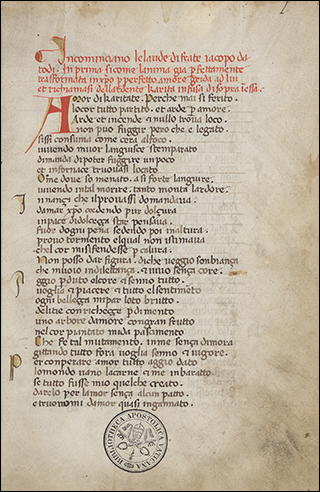 Incominciano le laude di frate iacopo da
todi. In prima si come lanima gia perfettamente
trasformata in xpo per perfetto amore grida ad lui
et richiamasi della ardente karita infusa di sopra ī essa.
Amor di karitate. Perche mai si ferito.
lo cor tutto partito. et arde per amore.
Arde et incende & nullo trova loco.
non puo fuggir pero che e legato.
sissi consuma come cera al foco.
vivendo muor languisce stemparato
dimanda di poter fuggire un poco
et in fornace truovasi locato
Ome dove so menato. a si forte languire.
vivendo intal morire. tanto monta lardore.
Innançi che il provassi domandava.
damar xpo credendo pur dolçura
in pace di dolceçça star pensava.
fuor dogni pena sedendo poi inaltura.
provo tormento el qual non istimava
chel cor mi si fendesse per calura.
Non posso dar figura. di che veggio sonbiança
che muoio in dilettança. & vivo sença core.
aggio perduto el core & senno tutto.
voglia & piacere & tutto el sentimeto
ogni belleçça mi par loto brutto.
delitie con richeççe perdimento
uno arbore damore con gran frutto
nel cor piantato mi da pascimento
Che fe tal mutamento. in me sença dimora
gittando tutto fora voglia senno & vigore.
per conperare amor tutto aggio dato
lo mondo
se tutto fusse mio quel che creato.
darelo per lamor sença alcun patto.
e truovomi damor quasi ingannato.
BIBLIOTHECA APOSTOLICA VATICANA